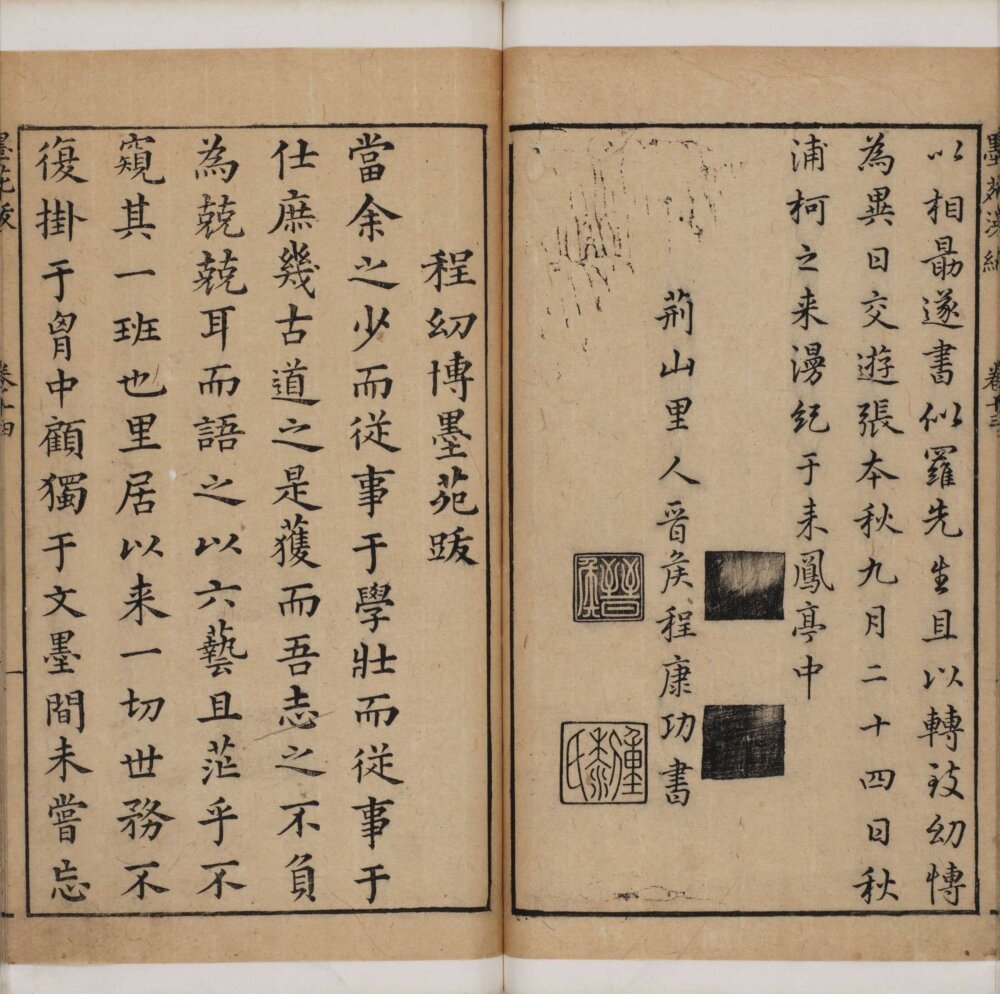 以相勗遂書似羅先生且以轉致幼博
為異日交遊張本秋九月二十四日秋
浦柯之来漫紀于来鳳亭中
荊山里人晉矦程康功書
程幼博墨苑跋
當余之少而從事于學壯而從事于
仕庶幾古道之是獲而吾志之不負
為兢兢耳而語之以六藝且茫乎不
窺其一班也里居以来一切世務不
復掛于胷中顧獨于文墨間未嘗忘
卷十四
一